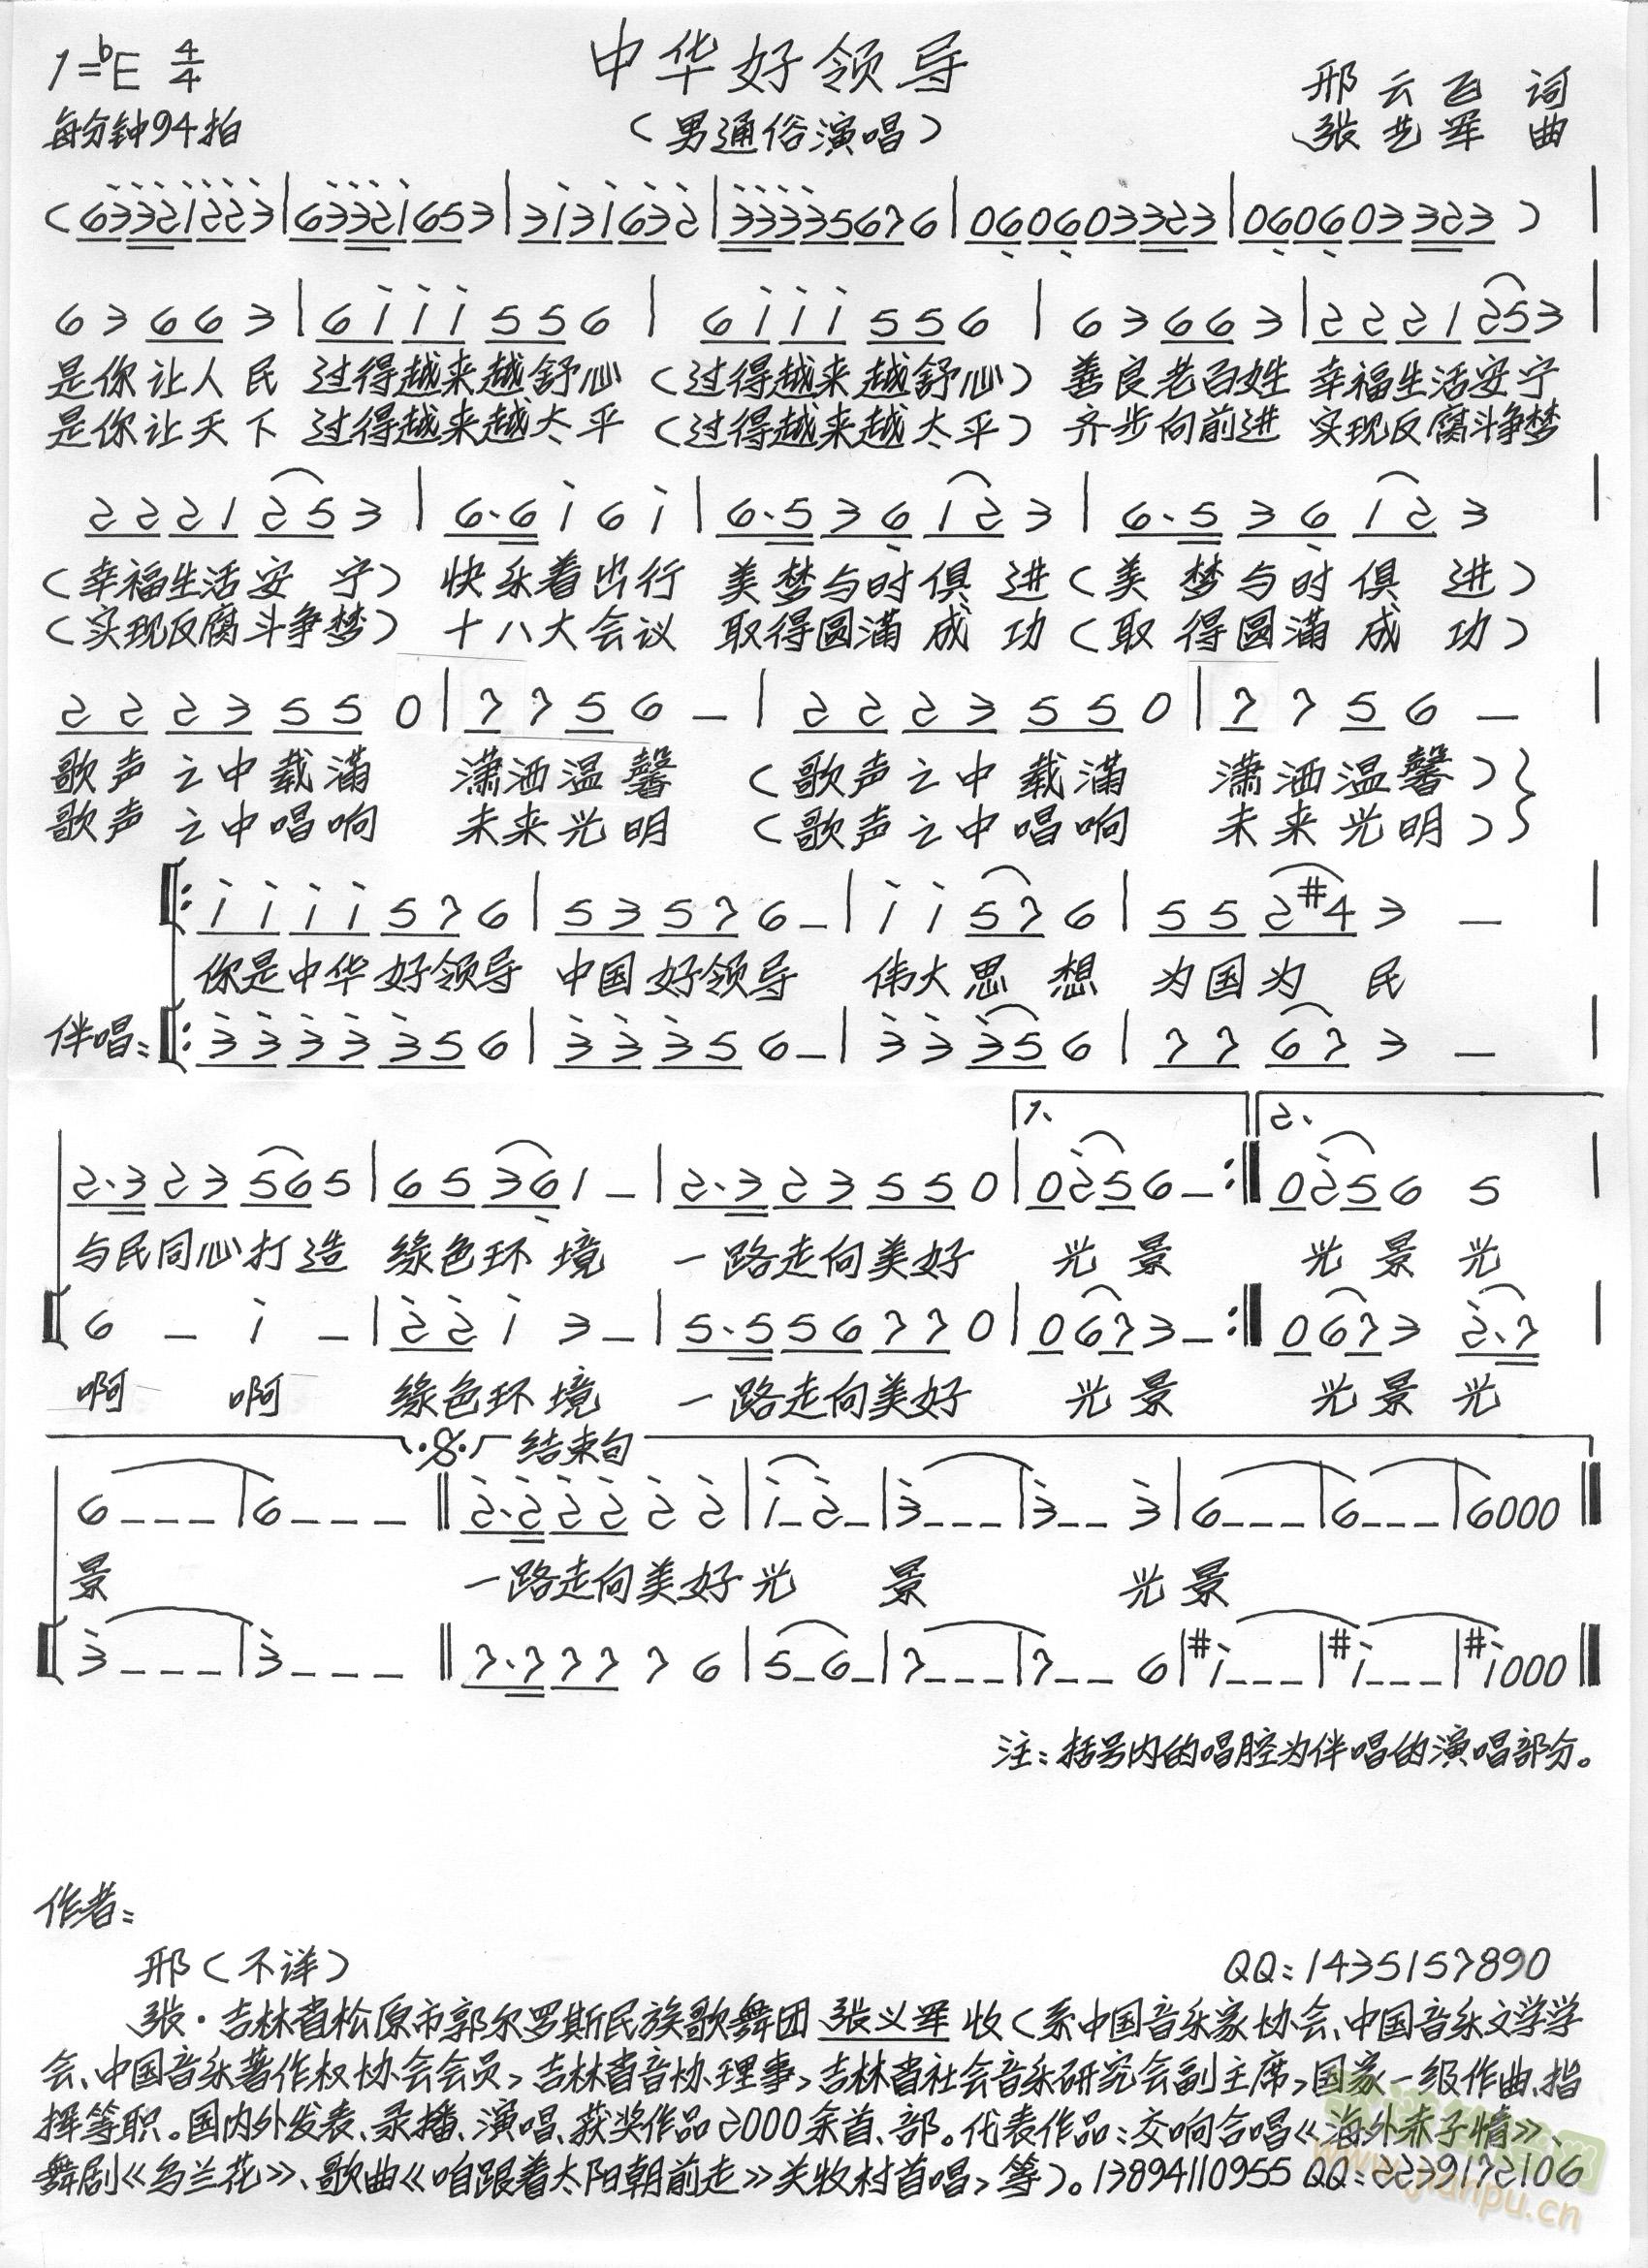 1=bE 4/4
中华好领导
每分钟94拍
（男通俗演唱）
邢云飞 词
张艺军 曲
（6332 1223|6332 1653|3131632|33335676|06060 3323|06060 3323）|
6 3 6 6 3|6 1 1 1 5 5 6|6 1 1 1 5 5 6|6 3 6 6 3|2 2 2 1 2 5 3|
是你让人民 过得越来越舒心（过得越来越舒心）善良老百姓 幸福生活安宁
是你让天下 过得越来越太平（过得越来越太平）齐步向前进 实现反腐斗争梦
2 2 2 1 2 5 3|6·6 1 6 1|6·5 3 6 1 2 3|6·5 3 6 1 2 3|
（幸福生活安宁）快乐着出行 美梦与时俱进（美梦与时俱进）
（实现反腐斗争梦）十八大会议 取得圆满成功（取得圆满成功）
2 2 2 3 5 5 0|7 7 5 6 —|2 2 2 3 5 5 0|7 7 5 6 —|
歌声之中载满 潇洒温馨（歌声之中载满 潇洒温馨）}
歌声之中唱响 未来光明（歌声之中唱响 未来光明）}
1 1 1 1 5 7 6|5 3 5 7 6 —|1 1 5 7 6|5 5 2 #4 3 —|
你是中华好领导 中国好领导 伟大思想 为国为民
伴唱：3 3 3 3 3 5 6|3 3 3 5 6 —|3 3 3 5 6|7 7 6 7 3 —|
1、 2、
2·3 2 3 5 6 5|6 5 3 6 1 —|2·3 2 3 5 5 0|0 2 5 6 —:|0 2 5 6 5|
与民同心打造 绿色环境 一路走向美好 光景 光景光
6 — 1 —|2 2 1 3 —|5·5 5 6 7 7 0|0 6 7 3 —:|0 6 7 3 2·7|
啊 啊 绿色环境 一路走向美好 光景 光景光
结束句
6 — — —|6 — — —‖2·2 2 2 2 2|1 — 2 —|3 — — —|3 — — 3|6 — — —|6 — — —|6000‖
景 一路走向美好光 景 光景
3 — — —|3 — — —‖7·7 7 7 7 6|5 — 6 —|7 — — —|7 — — 6|#1 — — —|#1 — — —|#1000‖
注：括号内的唱腔为伴唱的演唱部分。
作者：
邢（不详） QQ：1435157890
张·吉林省松原市郭尔罗斯民族歌舞团 张义军 收（系中国音乐家协会、中国音乐文学学
会、中国音乐著作权协会会员，吉林省音协理事，吉林省社会音乐研究会副主席，国家一级作曲、指
挥等职。国内外发表、录播、演唱、获奖作品2000余首、部。代表作品：交响合唱《海外赤子情》、
舞剧《乌兰花》、歌曲《咱跟着太阳朝前走》关牧村首唱，等）。13894110955 QQ：2239172106